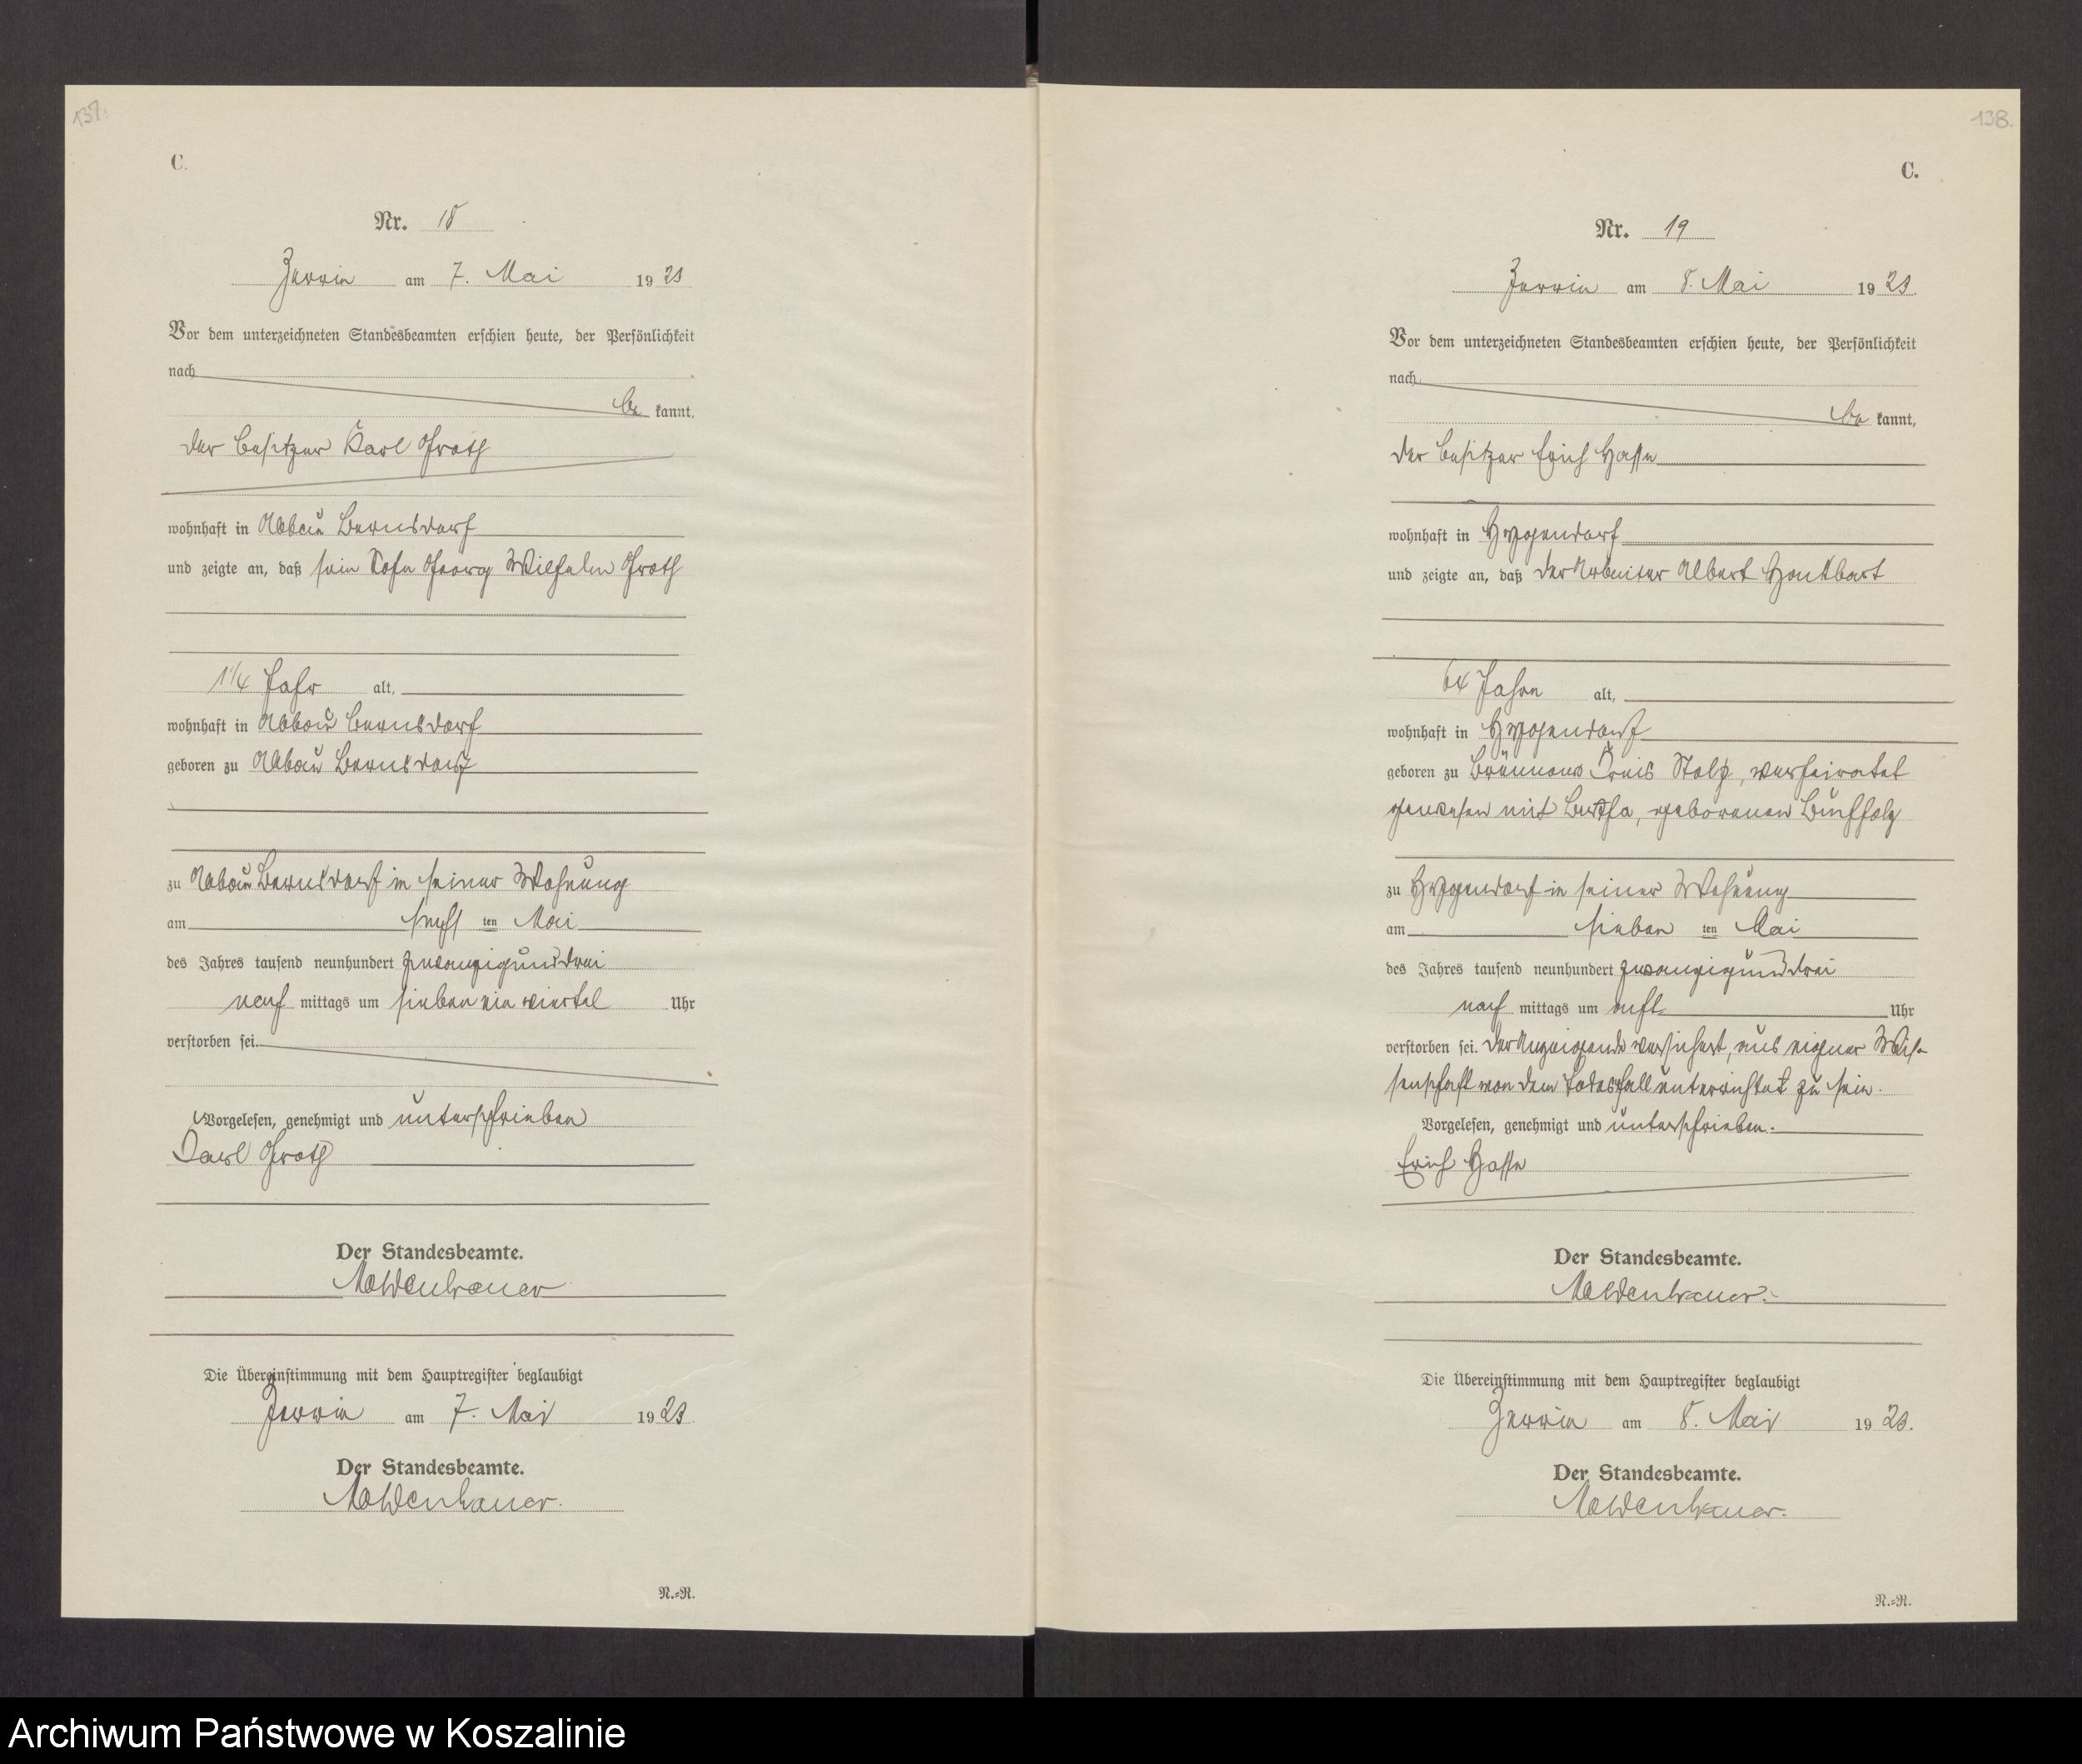 137.
C.
Nr. 18
Zerrin am 7. Mai 1923
Vor dem unterzeichneten Standesbeamten erschien heute, der Persönlichkeit
nach
be kannt,
der Besitzer Karl Groth
wohnhaft in Abbau Bernsdorf
und zeigte an, daß sein Sohn Georg Wilhelm Groth
1 1/4 Jahr alt,
wohnhaft in Abbau Bernsdorf
geboren zu Abbau Bernsdorf
zu Abbau Bernsdorf in seiner Wohnung
am sechs ten Mai
des Jahres tausend neunhundert zwanzigunddrei
nach mittags um sieben ein viertel Uhr
verstorben sei.
Vorgelesen, genehmigt und unterschrieben
Karl Groth
Der Standesbeamte.
Moldenhauer
Die Übereinstimmung mit dem Hauptregister beglaubigt
Zerrin am 7. Mai 1923.
Der Standesbeamte.
Moldenhauer.
N.=R.
138.
C.
Nr. 19
Zerrin am 8. Mai 1923.
Vor dem unterzeichneten Standesbeamten erschien heute, der Persönlichkeit
nach
be kannt,
der Besitzer Erich Hasse
wohnhaft in Hygendorf
und zeigte an, daß der Arbeiter Albert Hontbart
64 Jahre alt,
wohnhaft in Hygendorf
geboren zu Kreis Stolp, verheiratet
gewesen mit Bertha, geborenen Buchholz
zu Hygendorf in seiner Wohnung
am sieben ten Mai
des Jahres tausend neunhundert zwanzigunddrei
nach mittags um acht Uhr
verstorben sei. Der Anzeigende versichert, aus eigner Wis-
senschaft von dem Todesfall unterrichtet zu sein.
Vorgelesen, genehmigt und unterschrieben.
Erich Hasse
Der Standesbeamte.
Moldenhauer.
Die Übereinstimmung mit dem Hauptregister beglaubigt
Zerrin am 8. Mai 1923.
Der Standesbeamte.
Moldenhauer.
N.=R.
Archiwum Państwowe w Koszalinie